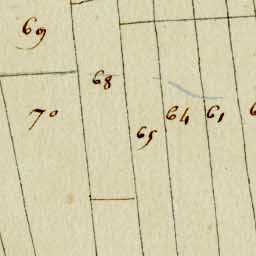 69
68
70
65
64
61